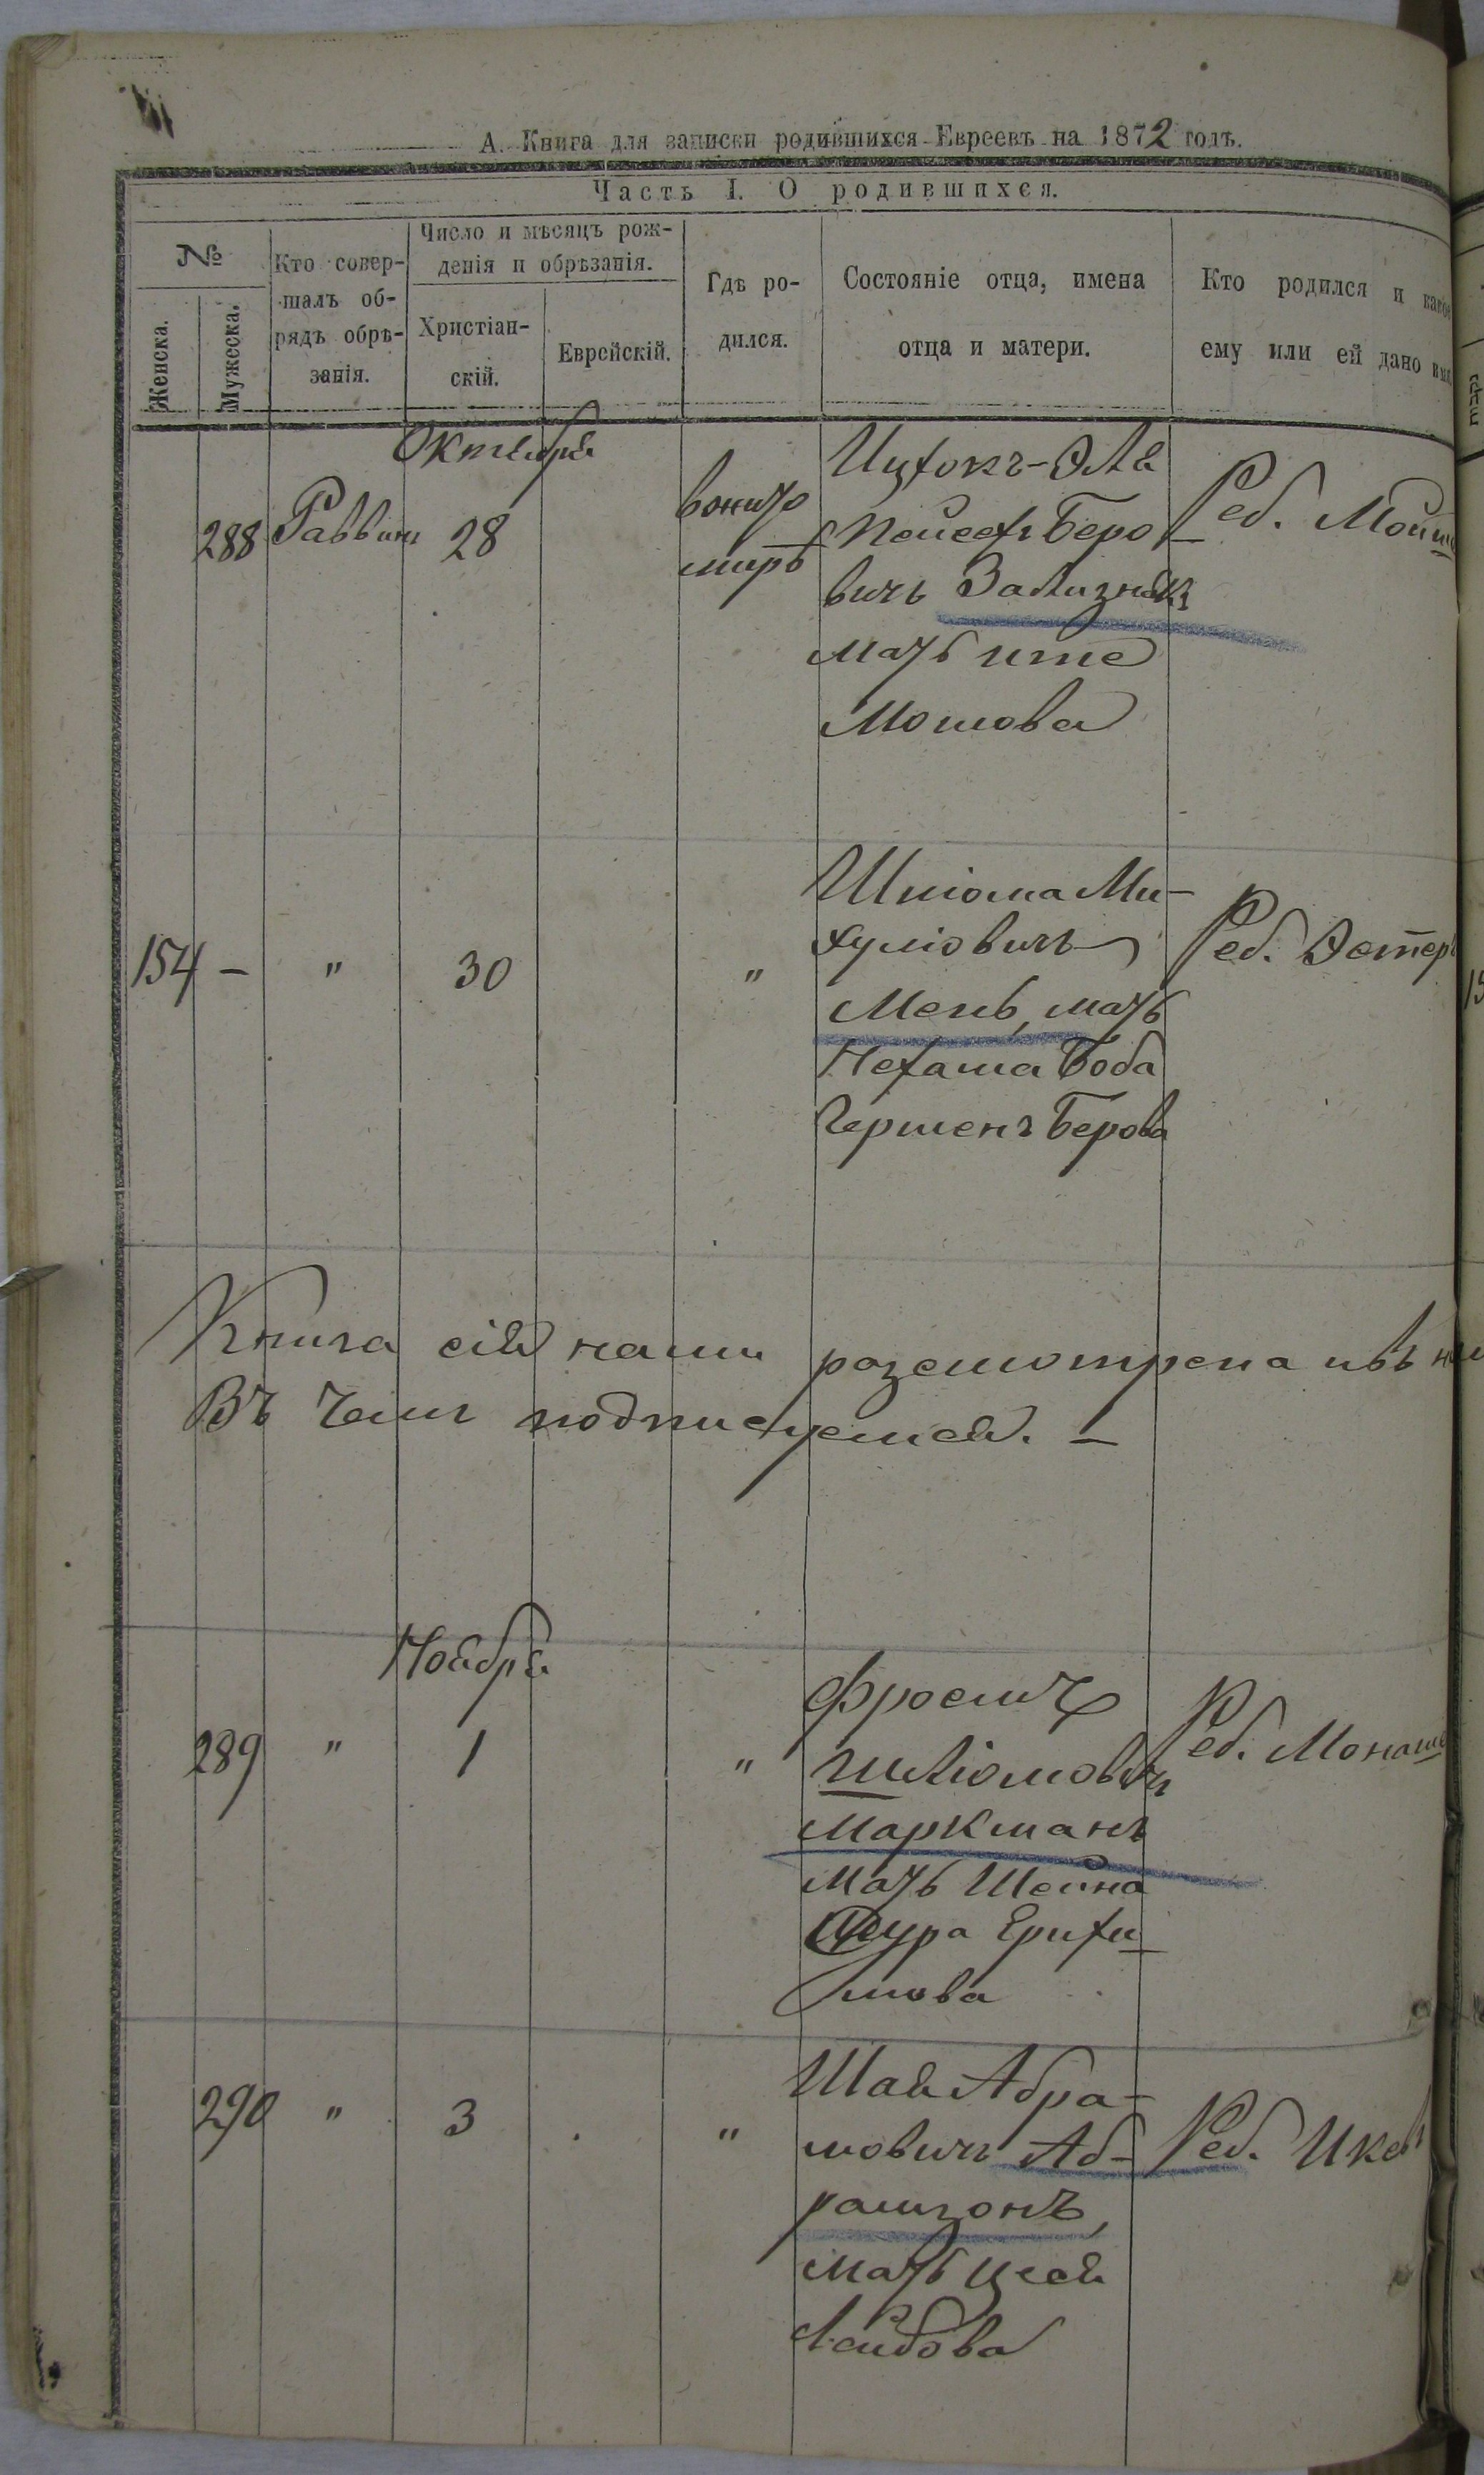 А. Книга для записки родившихся Евреевъ на 1872 годъ.
Часть I. О родившихся.
№
Женска.
Мужеска.
Кто совер-
шалъ об-
рядъ обрѣ-
занія.
Число и мѣсяцъ рож-
денія и обрѣзанія.
Христіан-
скій.
Еврейскій.
Гдѣ ро-
дился.
Состояніе отца, имена
отца и матери.
Кто родился и какое
ему или ей дано имя
Октября
288 Раввинъ 28
Ицхокъ-Эля
Беро
вичъ Зализнякъ
мать
Мошова
Реб. Мойше
154 — " 30 "
Шліома Ми-
хуліовичъ
Мень, мать
Нехама Боба
Гершенъ Берова
Реб. Эстеръ
Книга сія нами розсмотрена
Въ чемъ подписуемся. —
Ноября
289 " 1 "
Фроемъ
Шліомовичъ
Маркманъ
мать Шейна
Реб. Монаше
290 " 3 "
Шая Абра-
мовичъ Аб-
рамзонъ,
мать
Лейбова
Реб.